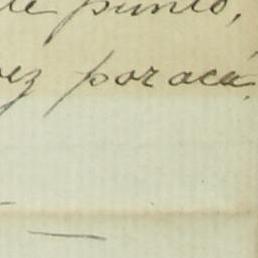 te punto,
ez por acá.